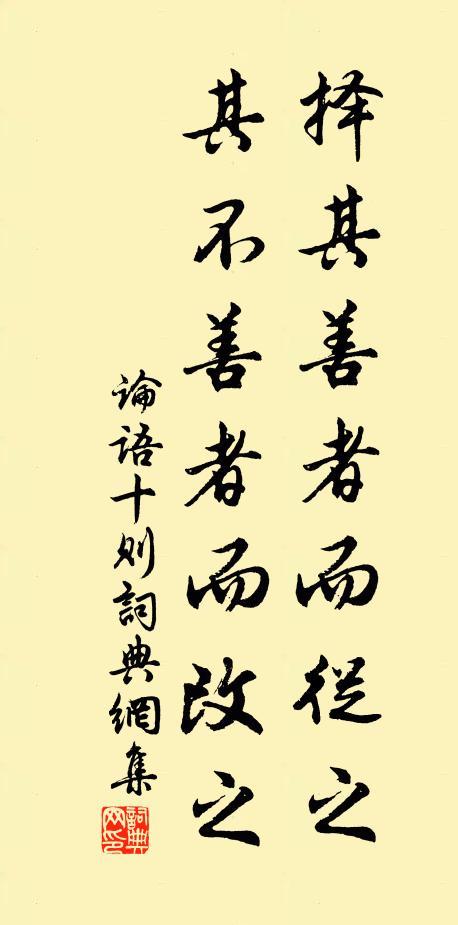 择其善者而從之
其不善者而改之
論語十则詞典網集
詞典网印